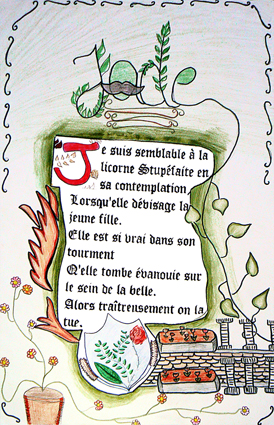 Je suis semblable à la
licorne Stupéfaite en
sa contemplation,
Lorsqu'elle dévisage la
jeune fille.
Elle est si vrai dans son
tourment
Q'elle tombe évanouie sur
le sein de la belle.
Alors traîtreusement on la
tue.